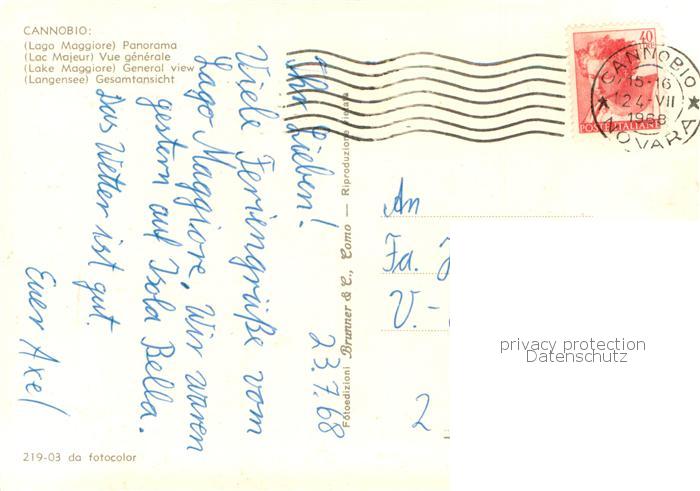 CANNOBIO:
(Lago Maggiore) Panorama
(Lac Majeur) Vue générale
(Lake Maggiore) General view
(Langensee) Gesamtansicht
23.7.68
Ihr Lieben!
Viele Feriengrüße vom
Lago Maggiore. Wir waren
gestern auf Isola Bella.
Das Wetter ist gut.
Euer Axel
Fotoedizioni Brunner & C., Como — Riproduzione vietata
40
LIRE
POSTE ITALIANE
CANNOBIO
15-16
24 VII
1968
NOVARA
An
Fa.
V.-
2
privacy protection
Datenschutz
219-03 da fotocolor